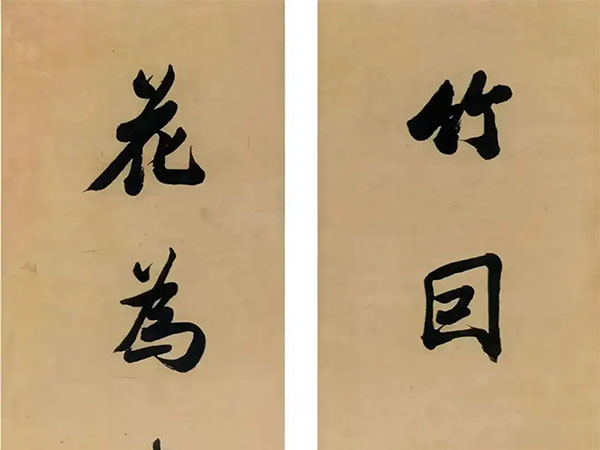 竹回
花為